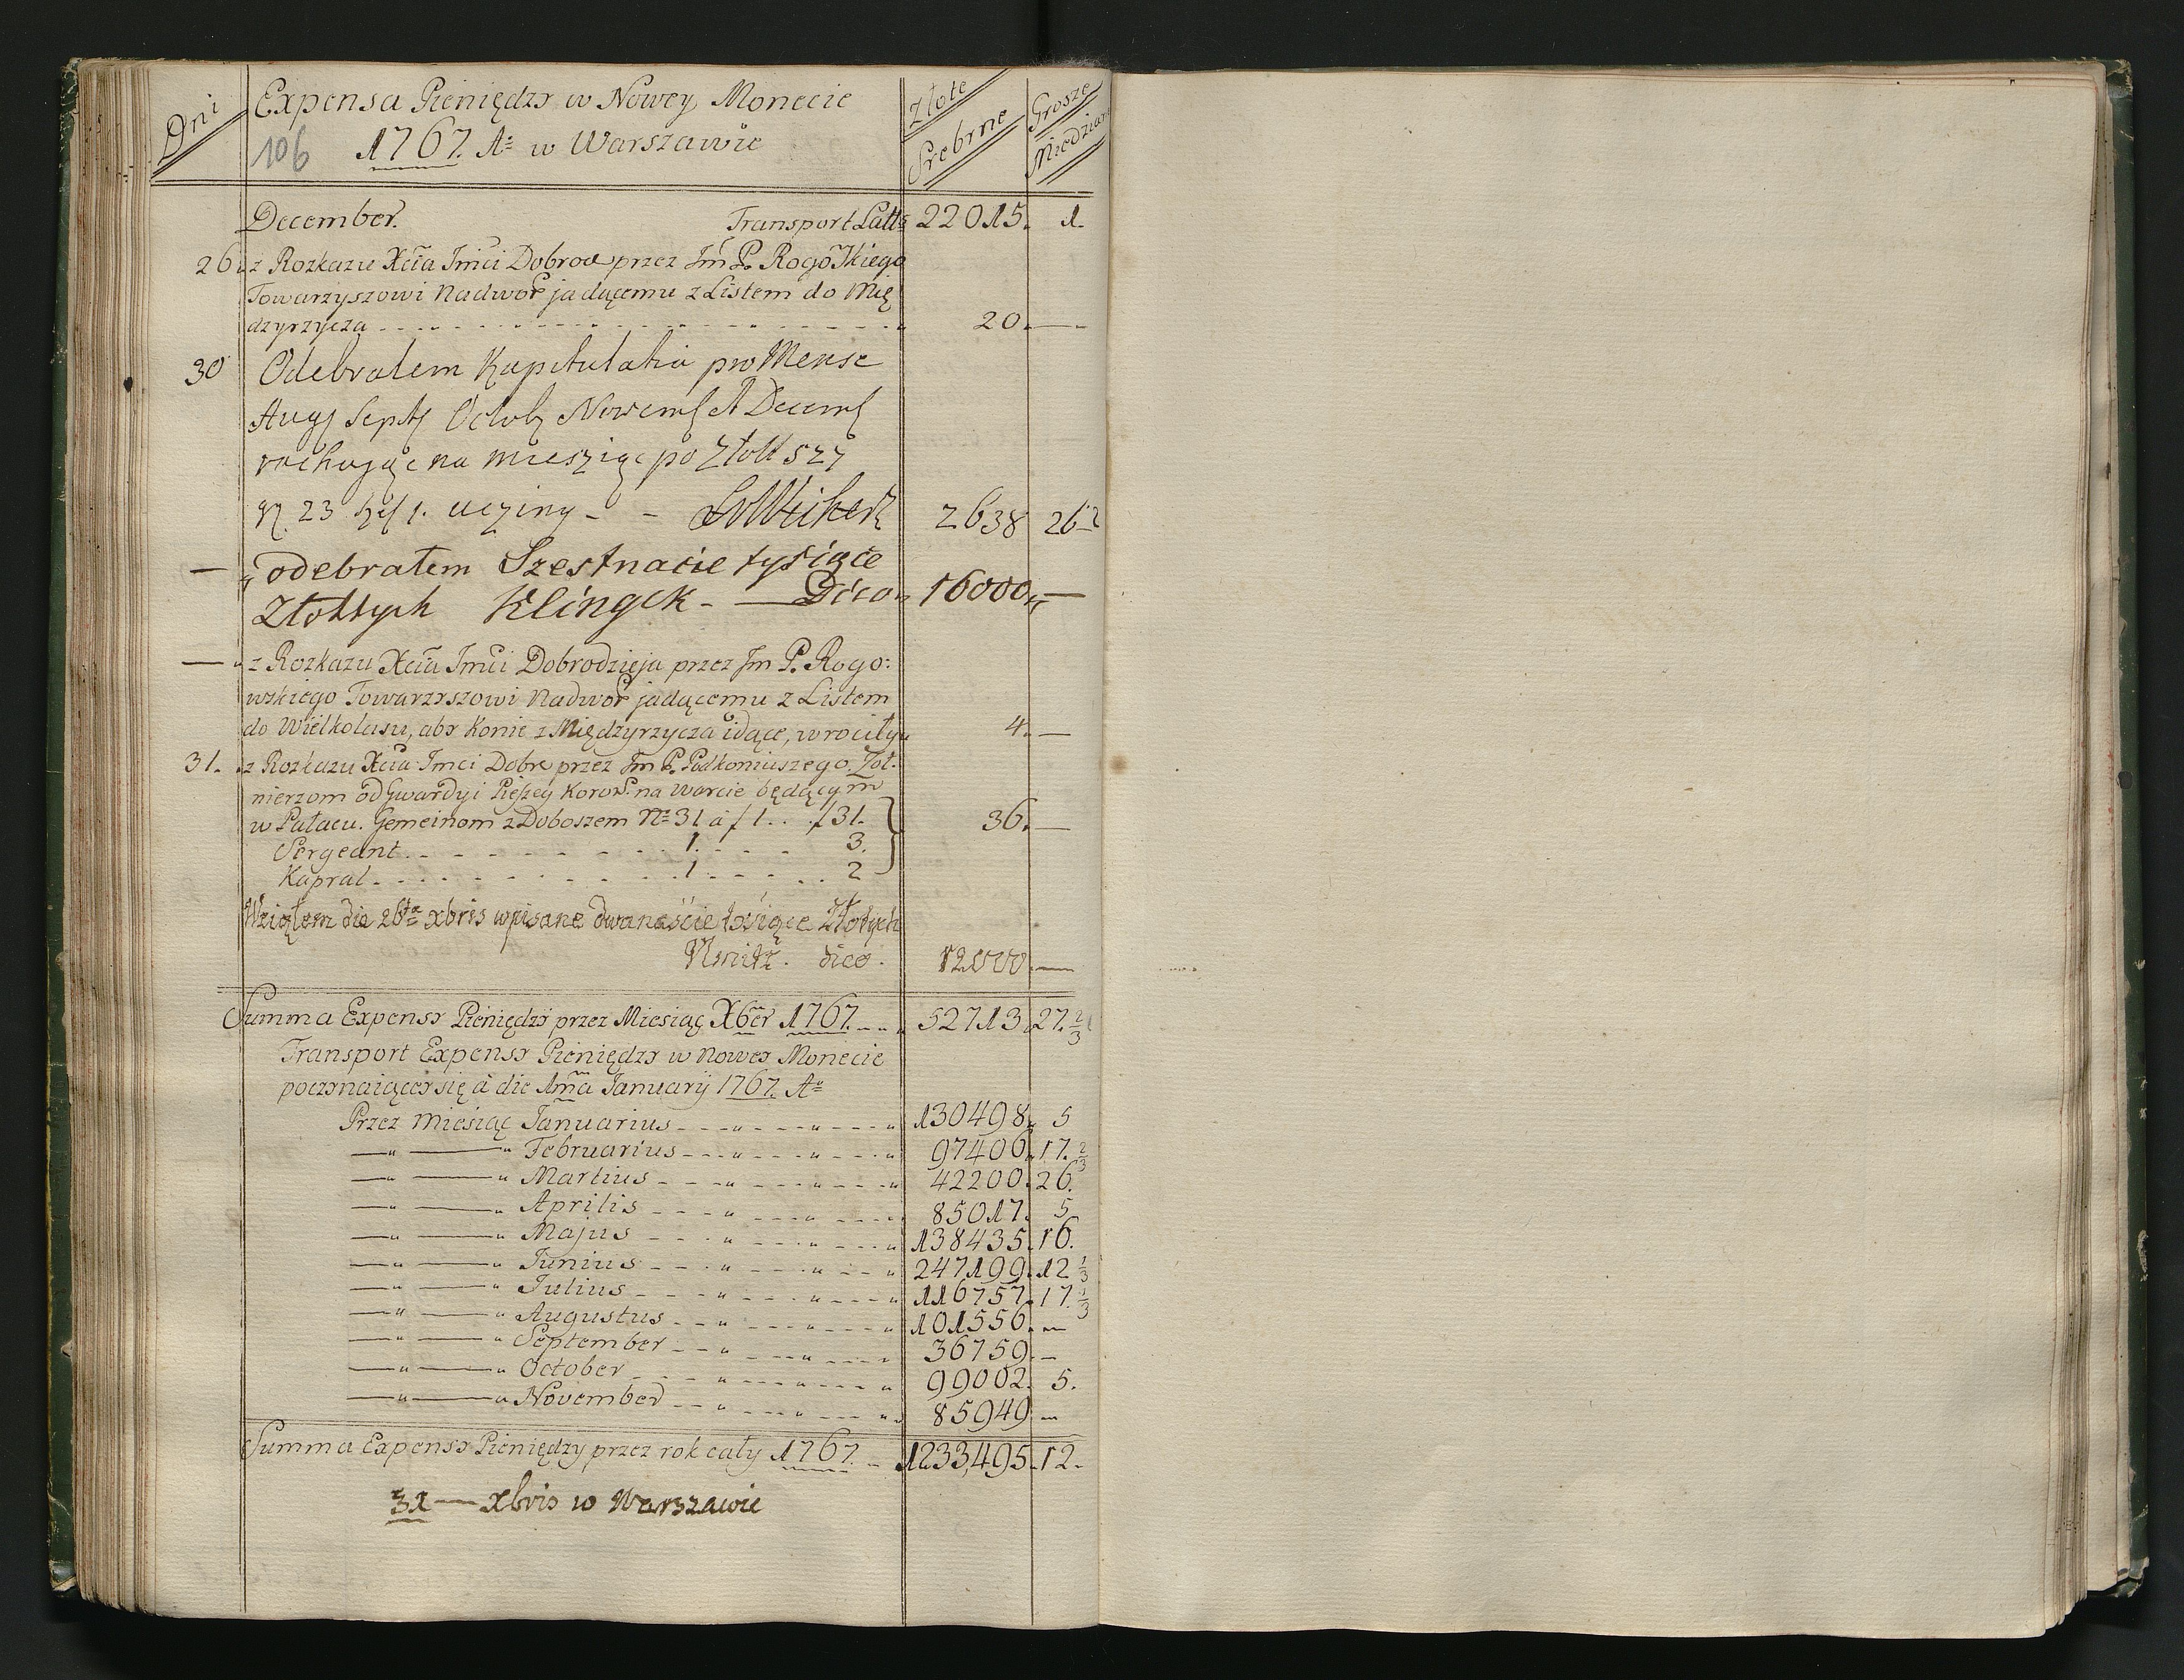 Dni Expensa Pieniędzy w Nowey Monecie Złote Grosze
106 1767. Aº w Warszawie Srebrne Miedziane
December. Transport Latt: 22015. 1.
26. z Rozkazu Xcia Imci Dobrod przez Jm P. Rogowskiego
Towarzyszowi Nadwor jadącemu z Listem do Mię
dzyrzycza 20. —
30 Odebrałem Kapitulatią pro Mense
Aug Sept Octob Novemb et Decemb
rachując na miesziąc po Złott 527
gr. 23 ucziny - - 2638 26 2
— odebrałem Szestnacie tysiące
Złottych Klingek - — Dico 16000 —
— z Rozkazu Xcia Imci Dobrodzieja przez Jm P. Rogo:
wskiego Towarzyszowi Nadwor jadącemu z Listem
do Wielkolasu, aby Konie z Międzyrzycza idące, wrociły 4. —
31. z Rozkazu Xcia Imci Dobr przez Jm P. Podkoniuszego. Żoł.
nierzom od Gwardyi Pieszey Koron. na Warcie będącym
w Pałacu. Gemeinom z Doboszem Nº 31 a f 1. . . f 31. 36. —
Sergeant 1. 3.
Kapral 1 2
Wziąłem die 26ta xbris wpisane dwanaście tysięce Złotych
dico. 12000 —
Summa Expensy Pieniędzy przez Miesiąc Xber 1767. 52713. 27. 2/3
Transport Expensy Pieniędzy w Nowey Monecie
poczynaiącey się à die 1ma Ianuarij 1767. Aº
Przez Miesiąc Ianuarius 130498. 5
— " — " Februarius 97406. 17. 2/3
— " — " Martius 42200. 26.
— " — " Aprilis 85017. 5
— " — " Majus 138435. 16.
— " — " Iunius 247199. 12 1/3
— " — " Iulius 116757. 17. 1/3
— " — " Augustus 101556. —
— " — " September 36759. —
— " — " October 99002. 5.
— " — " November 85949 —
Summa Expensy Pieniędzy przez rok cały 1767. 1233,495. 12.
31 — xbris w Warszawie